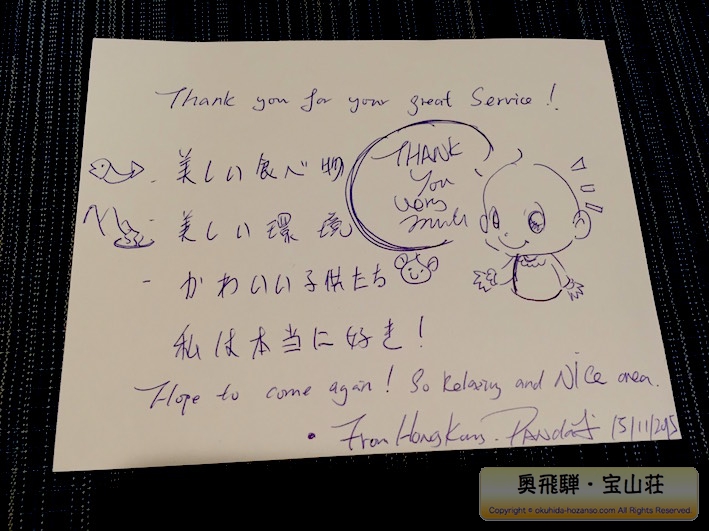 Thank you for your great Service!
美しい食べ物
美しい環境
- かわいい子供たち
私は本当に好き!
THANK
You
very
much
Hope to come again! So Relaxing and Nice area.
From Hong Kong. 15/11/2015
奥飛騨・宝山荘
Copyright © okuhida-hozanso.com All Rights Reserved.